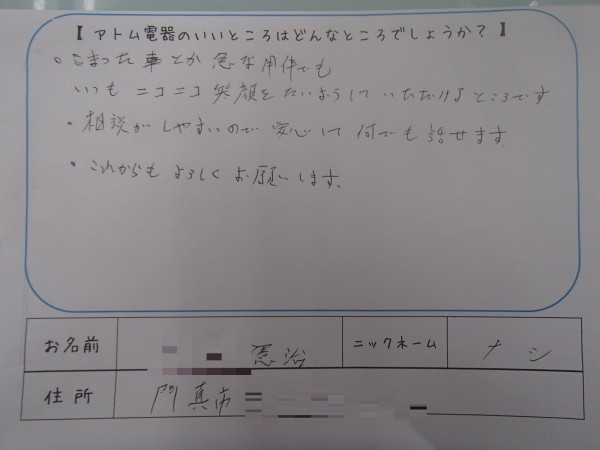 【 アトム電器のいいところはどんなところでしょうか? 】
○ こまった事とか 急な用件でも
いつも ニコニコ 笑顔でたいおうして いただけるところです
・相談がしやすいので 安心して 何でも話せます
・これからも よろしく お願いします。
お名前 憲治 ニックネーム ナシ
住所 門真市